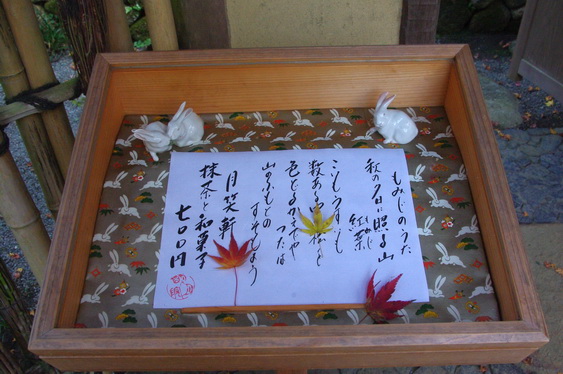 もみじのうた
秋の夕日に照る山
紅葉
もみじ
こいもうすいも
数ある
松を
色どるかえでや
つたは
山のふもとの
すそもよう
月笑軒
抹茶と和菓子
七〇〇円